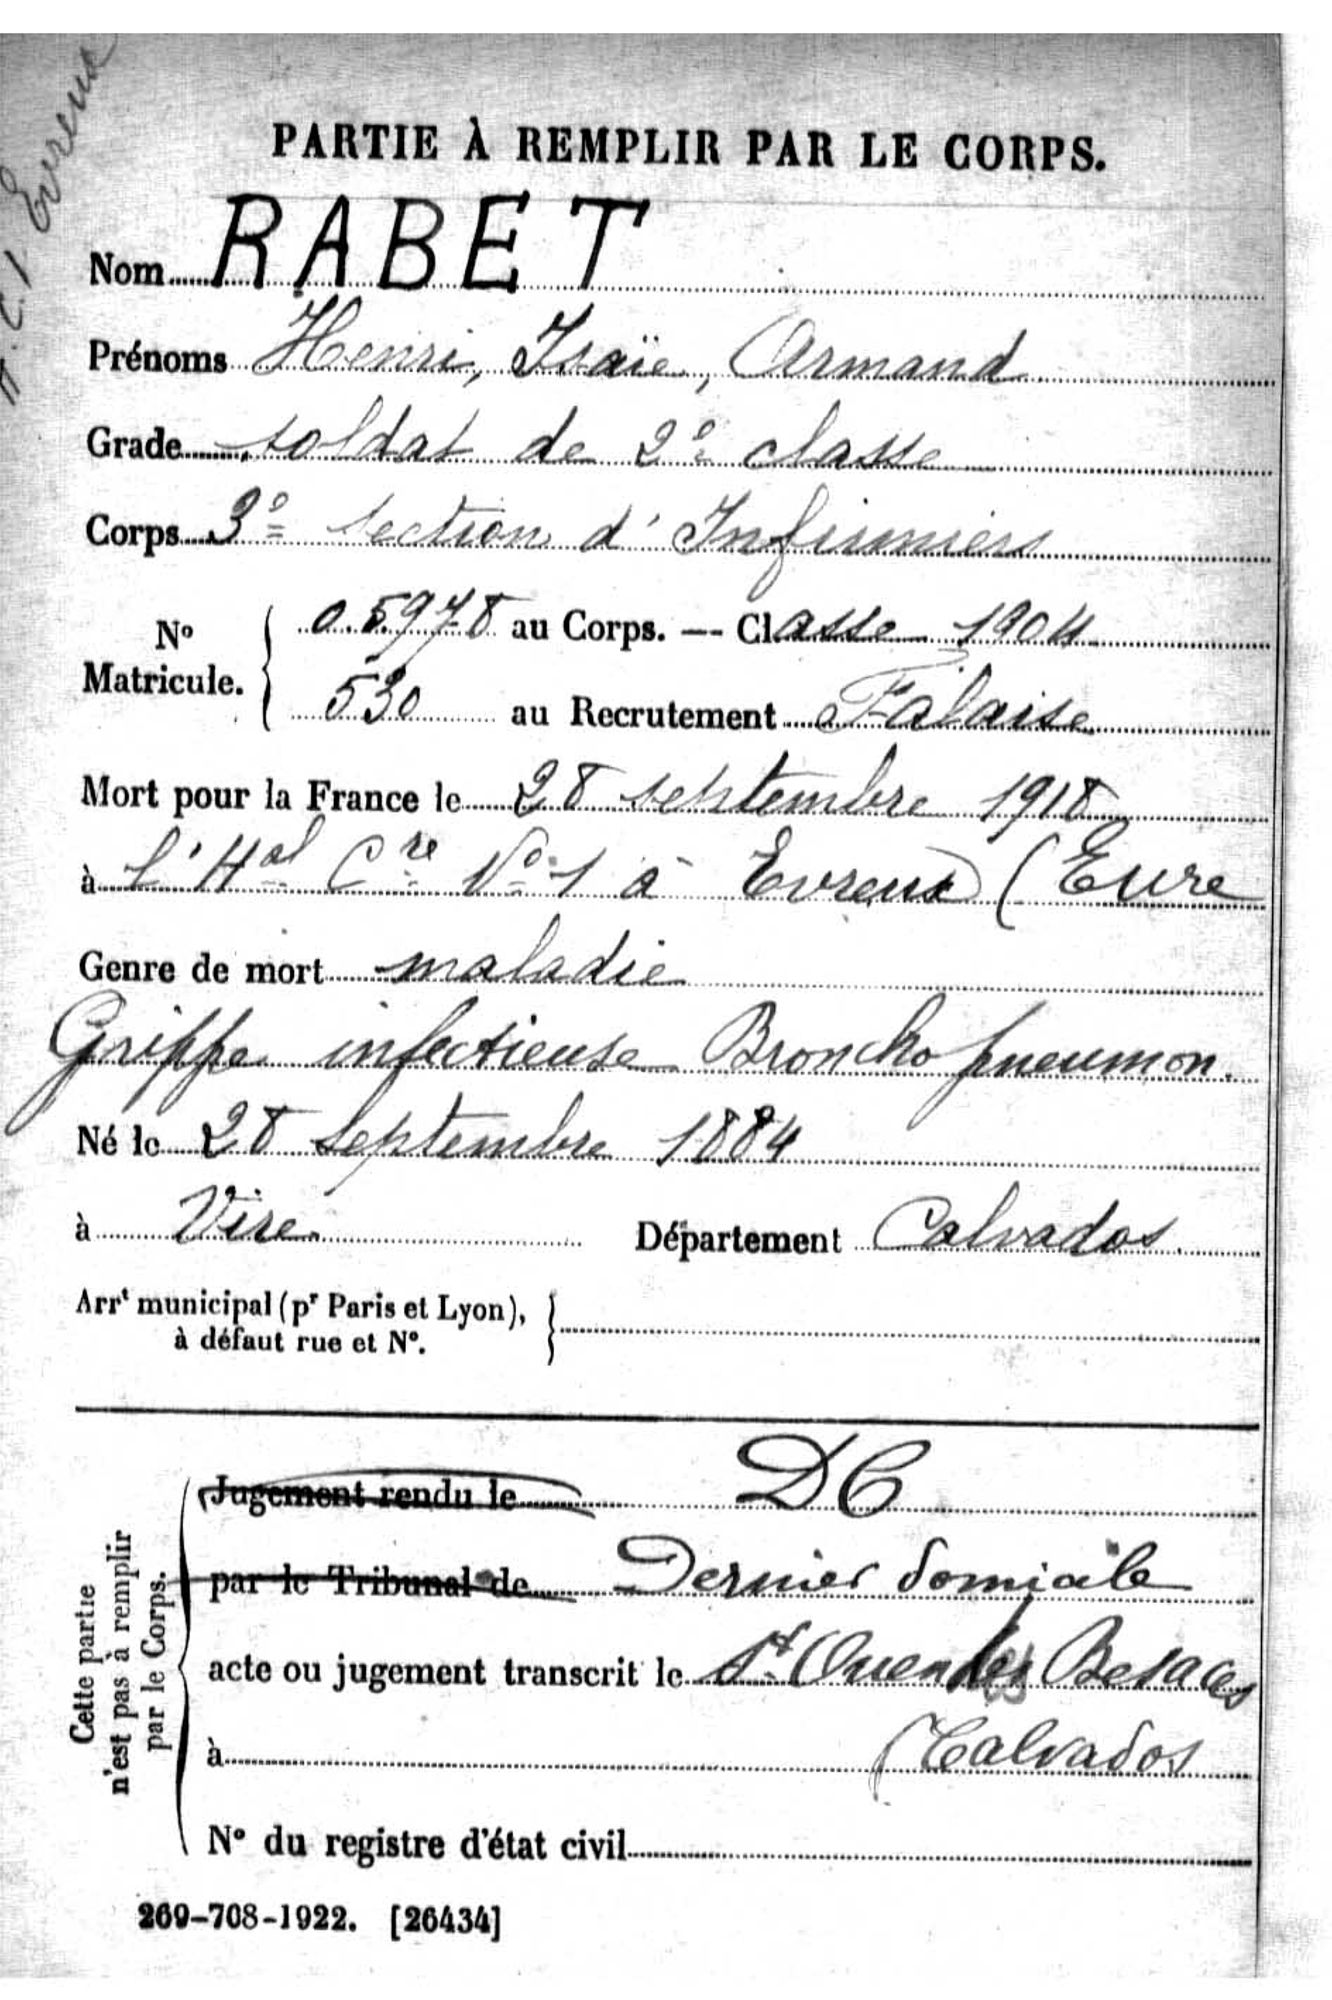 H. C. 1 Evreux
PARTIE À REMPLIR PAR LE CORPS.
Nom RABET
Prénoms Henri, Isaïe, Armand
Grade soldat de 2e classe
Corps 3e section d'Infirmiers
No Matricule. { 0.5978 au Corps. — Classe 1904
530 au Recrutement Falaise
Mort pour la France le 28 septembre 1918
à l'Hal Cre No 1 à Evreux (Eure
Genre de mort maladie
Grippe infectieuse Broncho pneumon.
Né le 28 septembre 1884
à Vire. Département Calvados.
Arrt municipal (pr Paris et Lyon), }
à défaut rue et No.
Cette partie
n'est pas à remplir
par le Corps.
Jugement rendu le DC
par le Tribunal de Dernier domicile
acte ou jugement transcrit le St Ouen des Besaces
à (Calvados
No du registre d'état civil
269-708-1922. [26434]